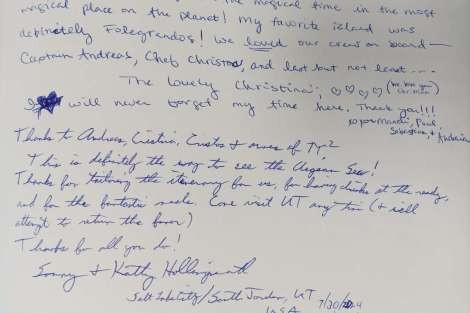 magical time in the most
magical place on the planet! My favorite island was
definetely Folegrandos! We loved our crew on board—
Captain Andreas, Chef Christos, and last but not least...
The lovely Christina; ♡♡♡♡
I will never forget my time here. Thank you!!!
Paul,
Sebastian, &
Thanks to Andreas, Cristina, & crew of
This is definitely the way to see the Aegean Sea!
Thanks for tailoring the itinerary for us, for having drinks at the ready,
and for the fantastic meals. Come visit UT any time (& I'll
attempt to return the favor)
Thanks for all you do!
Sonny & Kathy
Salt Lake City/South Jordan, UT
USA